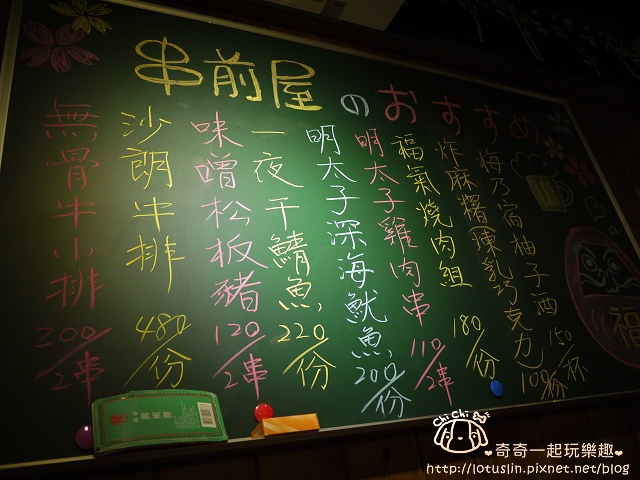 串前屋のおすすめ
梅乃宿柚子酒 150/杯
炸麻糬(煉乳巧克力) 100/份
福氣燒肉組 180/份
明太子雞肉串 110/2串
明太子深海魷魚 200/份
一夜干鯖魚 220/份
味噌松板豬 120/2串
沙朗牛排 480/份
無骨牛小排 200/2串
福
Chi Chi
奇奇一起玩樂趣
http://lotuslin.pixnet.net/blog